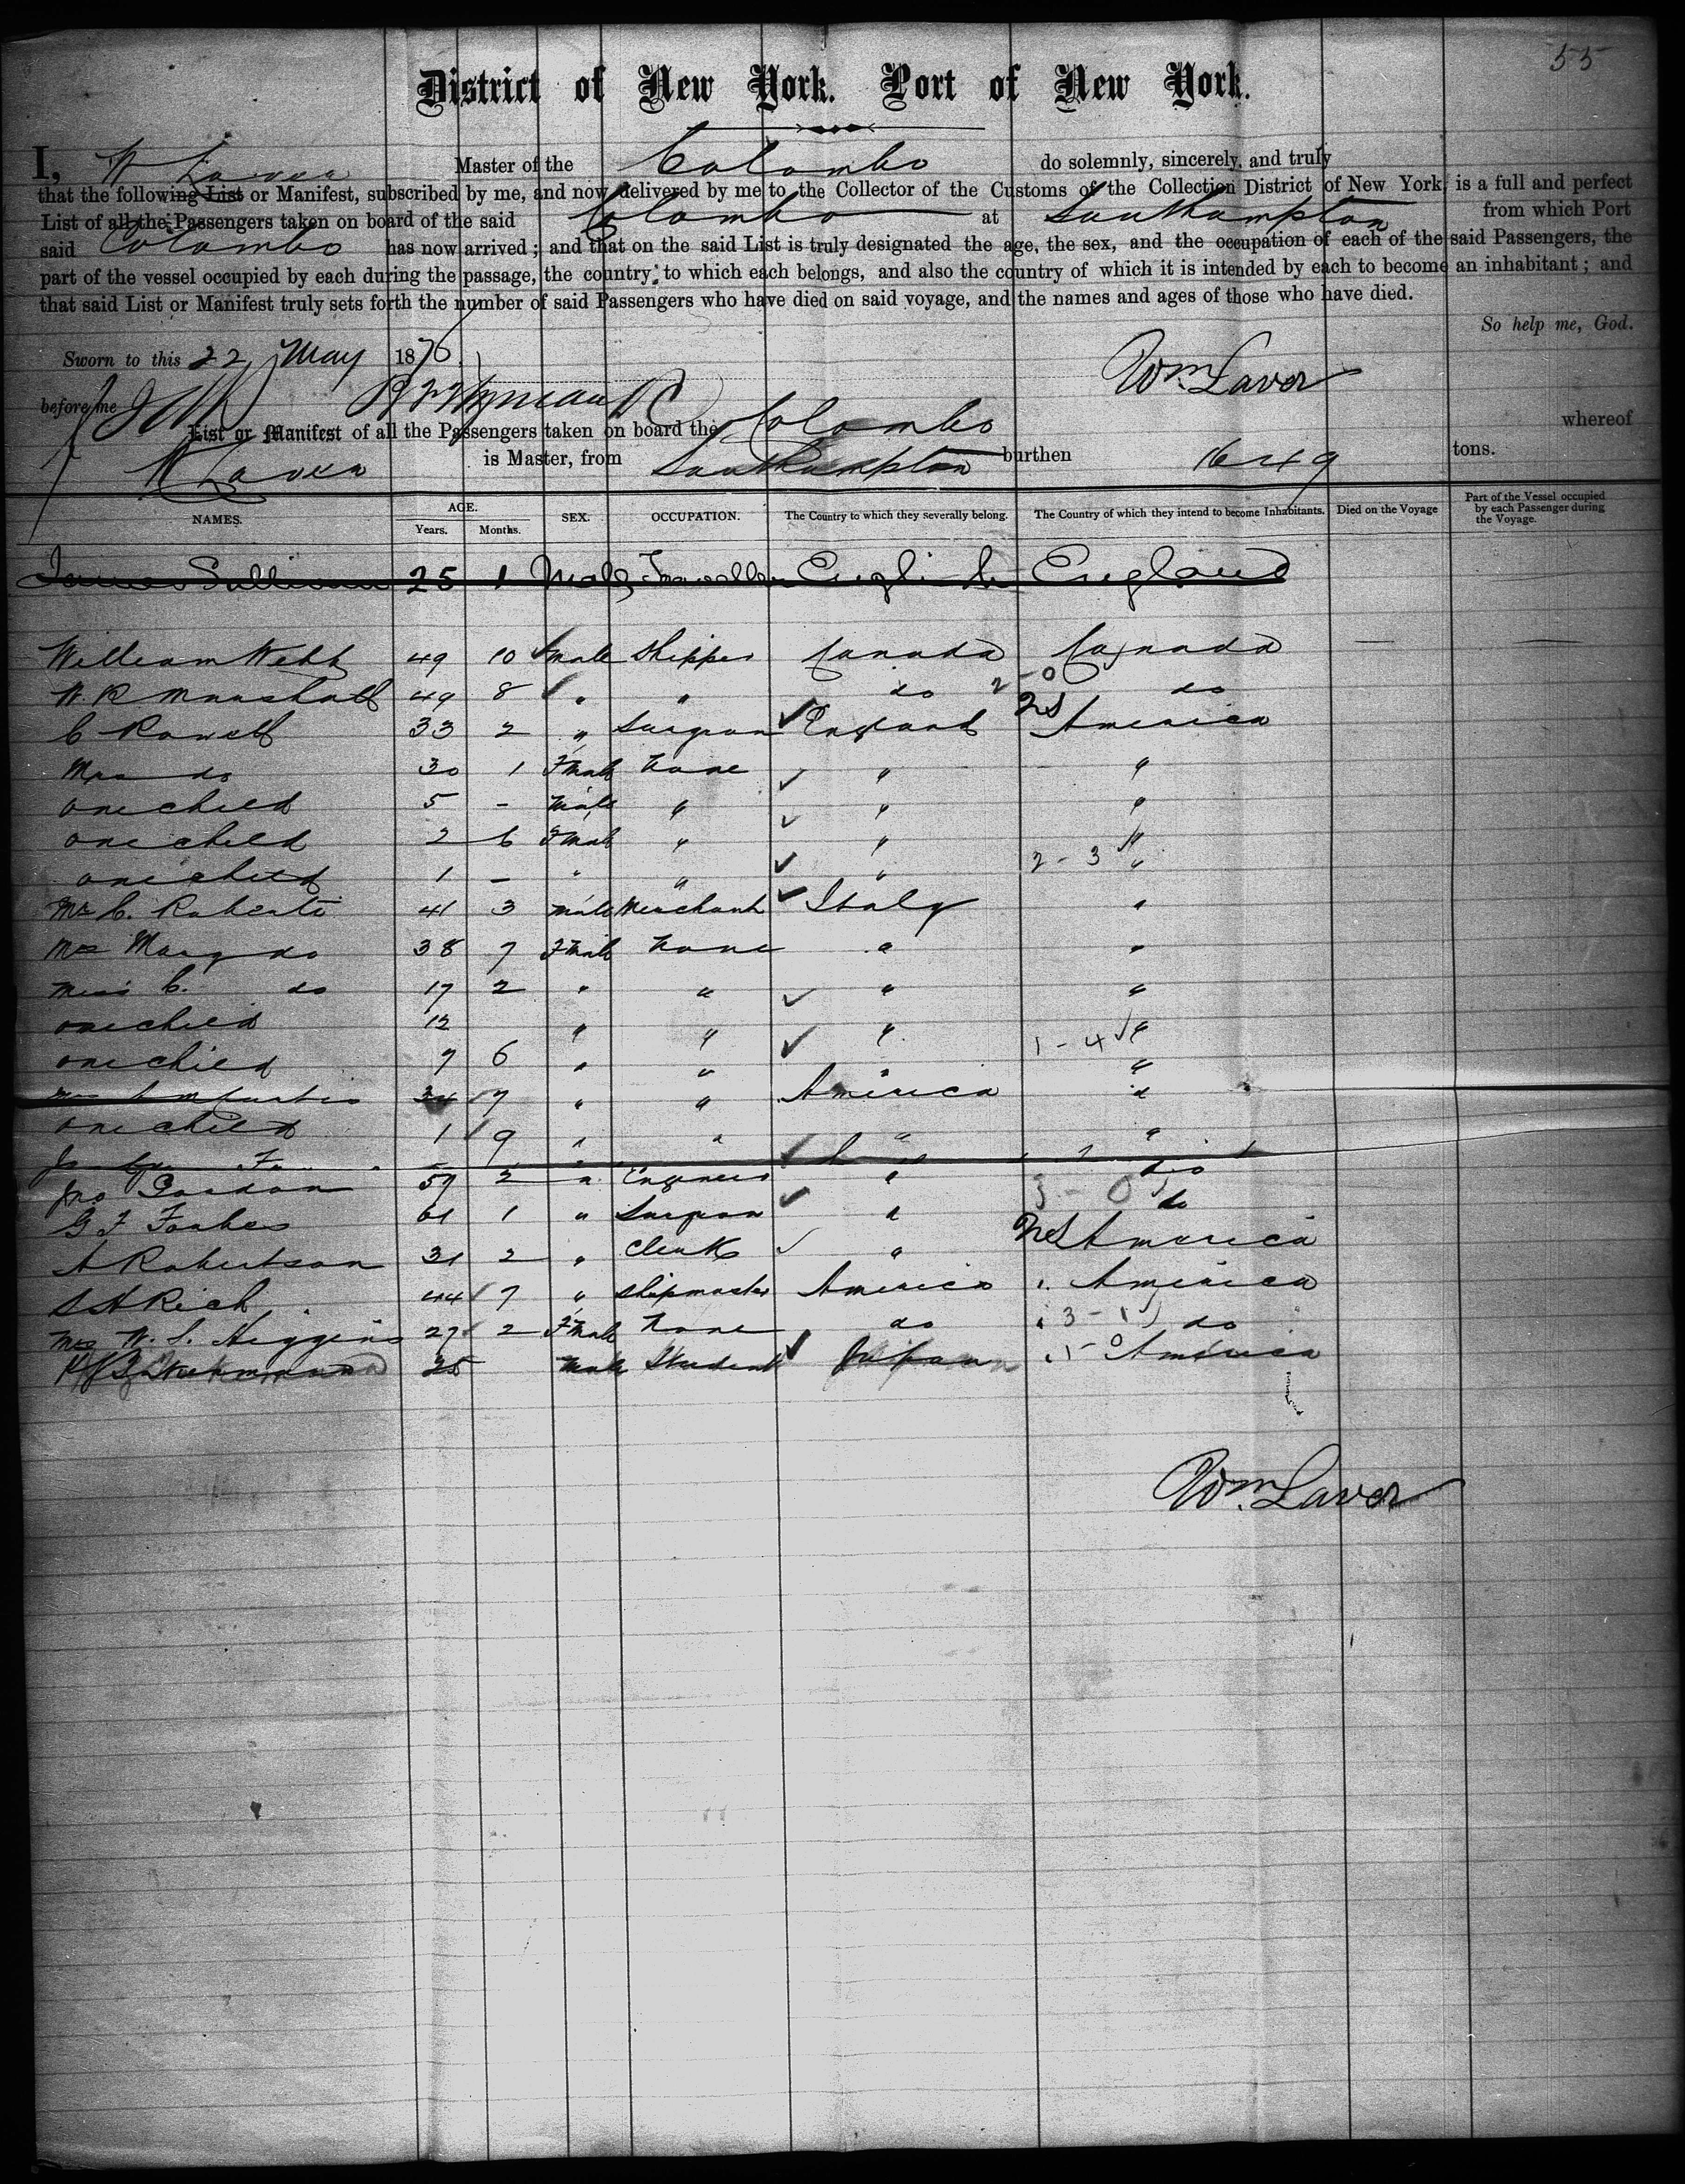 55
District of New York. Port of New York.
I, W Laver Master of the Colombo do solemnly, sincerely, and truly
that the following List or Manifest, subscribed by me, and now delivered by me to the Collector of the Customs of the Collection District of New York, is a full and perfect
List of all the Passengers taken on board of the said Colombo at Southampton from which Port
said Colombo has now arrived; and that on the said List is truly designated the age, the sex, and the occupation of each of the said Passengers, the
part of the vessel occupied by each during the passage, the country to which each belongs, and also the country of which it is intended by each to become an inhabitant; and
that said List or Manifest truly sets forth the number of said Passengers who have died on said voyage, and the names and ages of those who have died.
So help me, God.
Sworn to this 22 May 1876
Wm. Laver
before me
List or Manifest of all the Passengers taken on board the Colombo whereof
W Laver is Master, from Southampton burthen 1649 tons.
NAMES. AGE. Years. Months. SEX. OCCUPATION. The Country to which they severally belong. The Country of which they intend to become Inhabitants. Died on the Voyage Part of the Vessel occupied by each Passenger during the Voyage.
James Sullivan 25 1 Male Traveller English England
William Webb 49 10 Male Shipper Canada Canada
W. R Marshall 49 8 " " do 2-0 do
C Powell 33 2 " Surgeon England US America
Mrs do 30 1 Fmale None " "
one child 5 - Male " " "
one child 2 6 Fmale " " "
one child 1 - " " " 2 - 3 "
Mr C. Roberti 41 3 Male Merchant Italy "
Mrs Mary do 38 7 Fmale None " "
Miss C. do 17 2 " " " "
one child 12 " " " 1 - 4 "
one child 7 6 " " " "
Mrs Curtis 34 7 " " America "
one child 1 9 " " " "
Jno Gordon 57 2 " Engineer " do
G F Forbes 61 1 " Surgeon " do
A Robertson 31 2 " Clerk " US America
S A Rich 44 7 " Shipmaster America America
Mrs W. S. Higgins 27 2 Fmale None do 3 - 1 do
25 Male Student Japan America
Wm. Laver